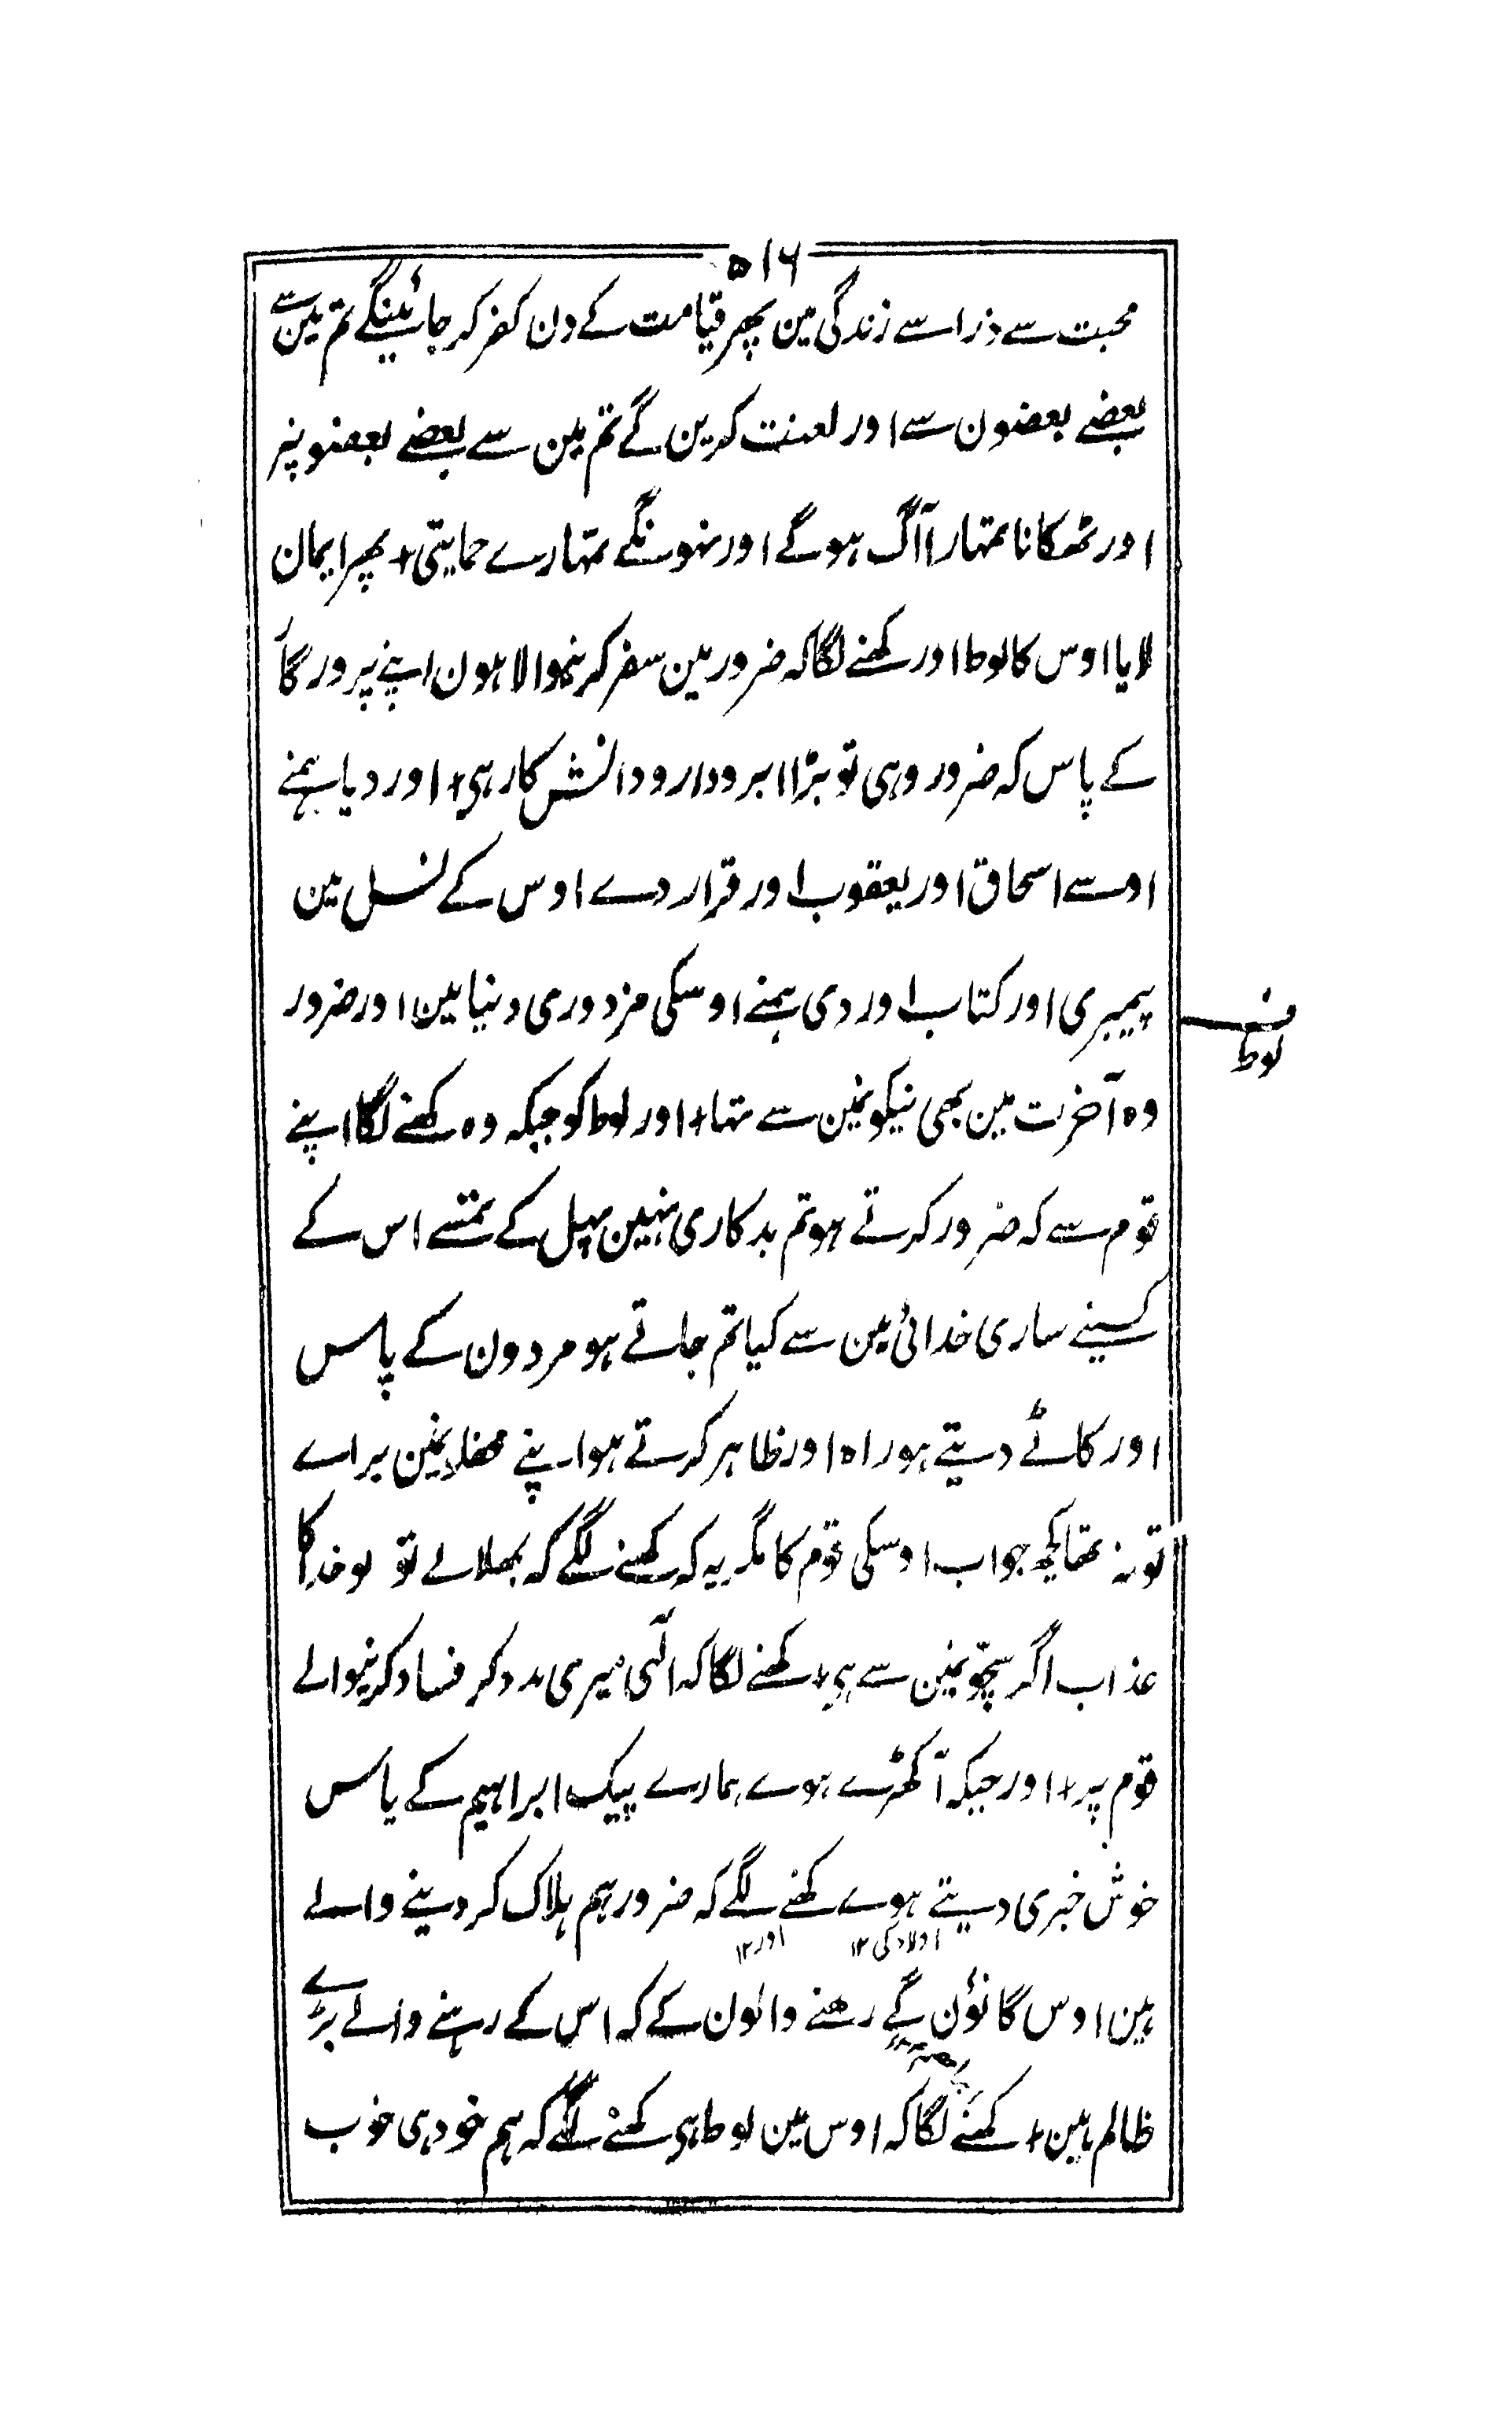 ۵۱۶
محبت سے ذرا سے زندگی مین پھر قیامت کے دن کفر کر جائینگے تم مین سے
بعضے بعضون سے اور لعنت کرین گے تم مین سے بعضے بعضونپر
اور ٹھکانا تمھارا آگ ہوگے اور نہونگے تمھارے حمایتی + پھر ایمان
لایا اوس کا لوط اور کھنے لگا کہ ضرور مین سفر کرنیوالا ہون اپنے پرورگار
کے پاس کہ ضرور وہی تو بڑا ابرودار و دانش کار ہی + اور دیا ہمنے
اوسے اسحاق اور یعقوب اور قرار دے اوس کے نسل مین
پیمبری اور کتاب اور دی ہمنے اوسکی مزدوری دنیا مین اور ضرور
ف لوط
وہ آخرت مین بھی نیکونمین سے تھا + اور لوط کو جبکہ وہ کھنے لگا اپنے
قوم سے کہ ضرور کرتے ہو تم بدکاری نہین پہل کے تمسے اس کے
کسینے ساری خدائی مین سے کیا تم جاتے ہو مردون کے پاس
اور کاٹے دیتے ہو راہ اور ظاہر کرتے ہو اپنے محفلونمین براے
تو نہ تھا کچھ جواب اوسکی قوم کا مگر یہ کہ کھنے لگے کہ بھلا لے تو لو خدا کا
عذاب اگر سچونمین سے ہی + کھنے لگا کہ الٰہی میری مدد کر فساد کرنیوالے
قوم پر + اور جبکہ آ کھڑے ہوے ہمارے پیک ابراہیم کے پاس
خوش خبری دیتے ہوے کھنے لگے کہ ضرور ہم ہلاک کر دینے والے
اولاد کی ۱۲ اور ۱۲
ہین اوس گانؤن کے رھنے والون کے کہ اس کے رہنے والے بڑے
ظالم ہین + کھنے لگا کہ اوس مین لوط ہی کھنے لگے کہ ہم خود ہی خوب